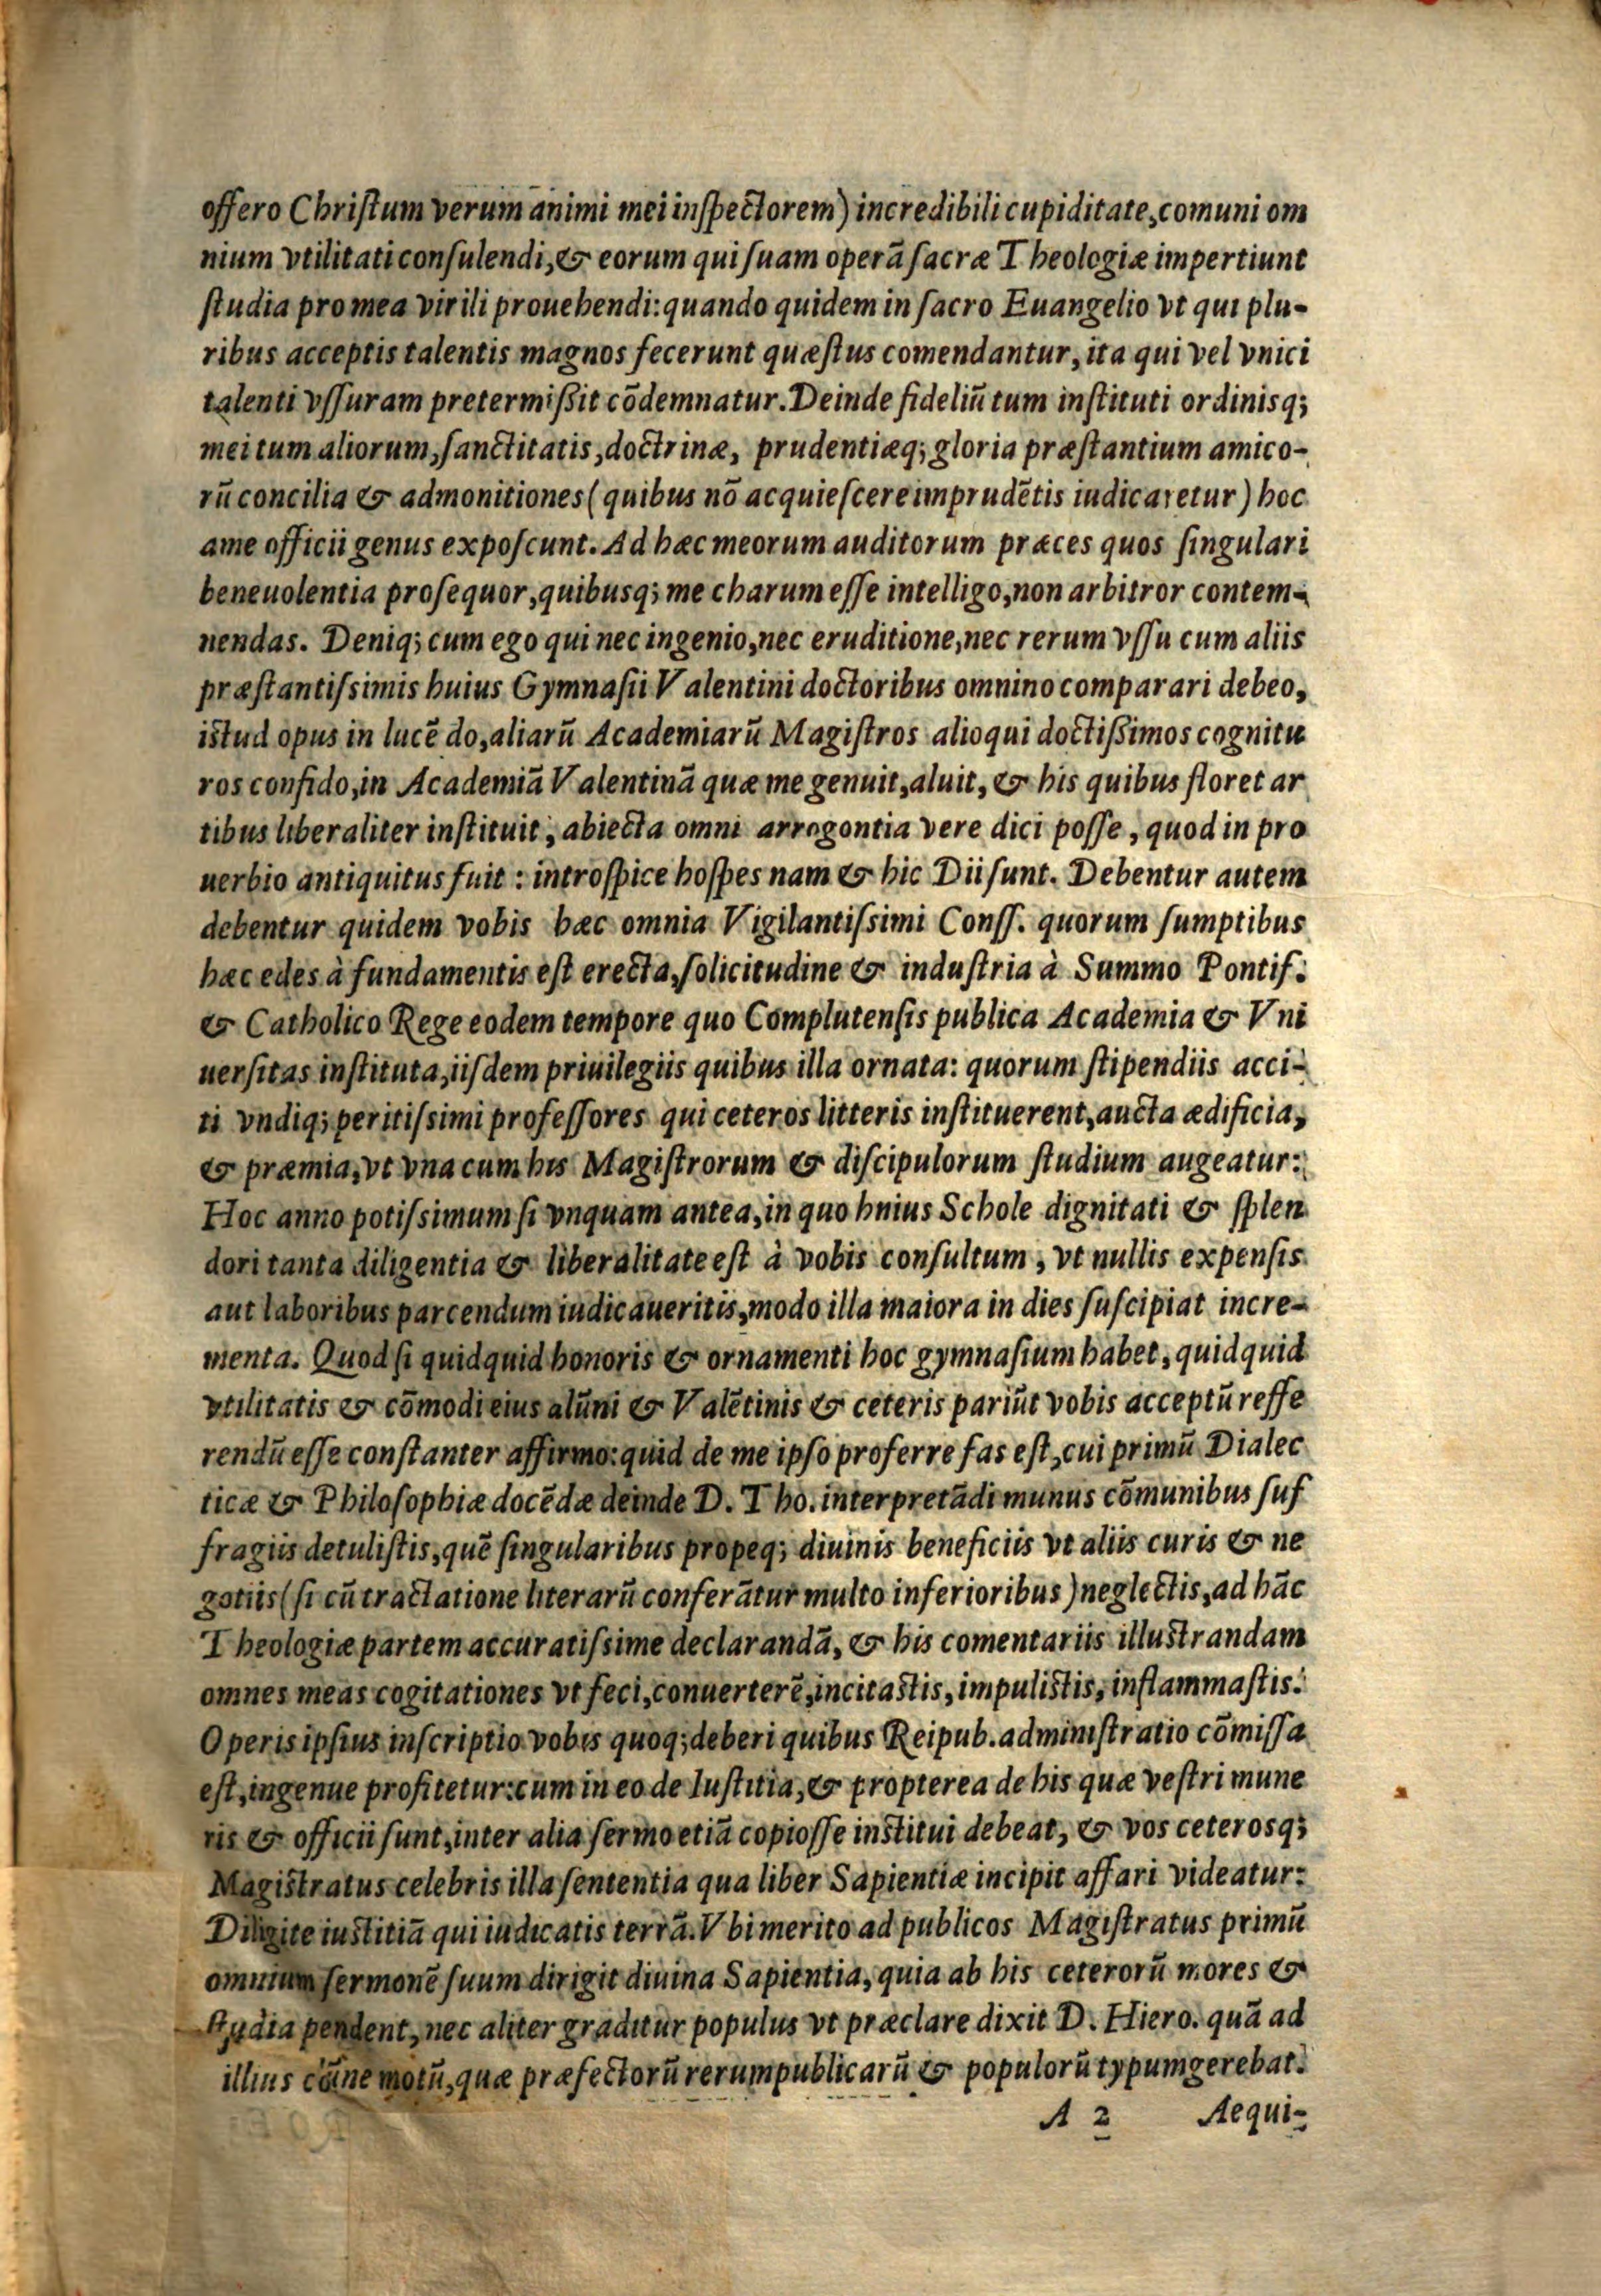 offero Chriſtum verum animi mei inſpectorem) incredibili cupiditate, comuni om
nium vtilitati conſulendi, & eorum qui ſuam operā ſacræ Theologiæ impertiunt
ſtudia pro mea virili prouehendi: quando quidem in ſacro Euangelio vt qui plu-
ribus acceptis talentis magnos fecerunt quæſtus comendantur, ita qui vel vnici
talenti vſſuram pretermiſsit cōdemnatur. Deinde fideliū tum inſtituti ordinisq;
mei tum aliorum, ſanctitatis, doctrinæ, prudentiæq; gloria præſtantium amico-
rū concilia & admonitiones (quibus nō acquieſcere imprudētis iudicaretur) hoc
ame officii genus expoſcunt. Ad hæc meorum auditorum præces quos ſingulari
beneuolentia proſequor, quibusq; me charum eſſe intelligo, non arbitror contem-
nendas. Deniq; cum ego qui nec ingenio, nec eruditione, nec rerum vſſu cum aliis
præſtantiſsimis huius Gymnaſii Valentini doctoribus omnino comparari debeo,
iſtud opus in lucē do, aliarū Academiarū Magiſtros alioqui doctiſsimos cognitu
ros confido, in Academiā Valentinā quæ me genuit, aluit, & his quibus floret ar
tibus liberaliter inſtituit, abiecta omni arrogontia vere dici poſſe, quod in pro
uerbio antiquitus fuit: introſpice hoſpes nam & hic Dii ſunt. Debentur autem
debentur quidem vobis hæc omnia Vigilantiſsimi Conſſ. quorum ſumptibus
hæc edes à fundamentis eſt erecta, ſolicitudine & induſtria à Summo Pontif.
& Catholico Rege eodem tempore quo Complutenſis publica Academia & Vni
uerſitas inſtituta, iiſdem priuilegiis quibus illa ornata: quorum ſtipendiis acci-
ti vndiq; peritiſsimi profeſſores qui ceteros litteris inſtituerent, aucta ædificia,
& præmia, vt vna cum his Magiſtrorum & diſcipulorum ſtudium augeatur:
Hoc anno potiſsimum ſi vnquam antea, in quo hnius Schole dignitati & ſplen
dori tanta diligentia & liberalitate eſt à vobis conſultum, vt nullis expenſis
aut laboribus parcendum iudicaueritis, modo illa maiora in dies ſuſcipiat incre-
menta. Quod ſi quidquid honoris & ornamenti hoc gymnaſium habet, quidquid
vtilitatis & cōmodi eius alūni & Valētinis & ceteris pariūt vobis acceptū reffe
rendū eſſe conſtanter affirmo: quid de me ipſo proferre fas eſt, cui primū Dialec
ticæ & Philoſophiæ docēdæ deinde D. Tho. interpretādi munus cōmunibus ſuf
fragiis detuliſtis, quē ſingularibus propeq; diuinis beneficiis vt aliis curis & ne
gotiis (ſi cū tractatione literarū conferātur multo inferioribus) neglectis, ad hāc
Theologiæ partem accuratiſsime declarandā, & his comentariis illuſtrandam
omnes meas cogitationes vt feci, conuerterē, incitaſtis, impuliſtis, inflammaſtis.
Operis ipſius inſcriptio vobis quoq; deberi quibus Reipub. adminiſtratio cōmiſſa
eſt, ingenue profitetur: cum in eo de Iuſtitia, & propterea de his quæ veſtri mune
ris & officii ſunt, inter alia ſermo etiā copioſſe inſtitui debeat, & vos ceterosq;
Magiſtratus celebris illa ſententia qua liber Sapientiæ incipit affari videatur:
Diligite iuſtitiā qui iudicatis terrā. Vbi merito ad publicos Magiſtratus primū
omnium ſermonē ſuum dirigit diuina Sapientia, quia ab his ceterorū mores &
ſtudia pendent, nec aliter graditur populus vt præclare dixit D. Hiero. quā ad
illius motū, quæ præfectorū rerumpublicarū & populorū typum gerebat.
A 2 Aequi-